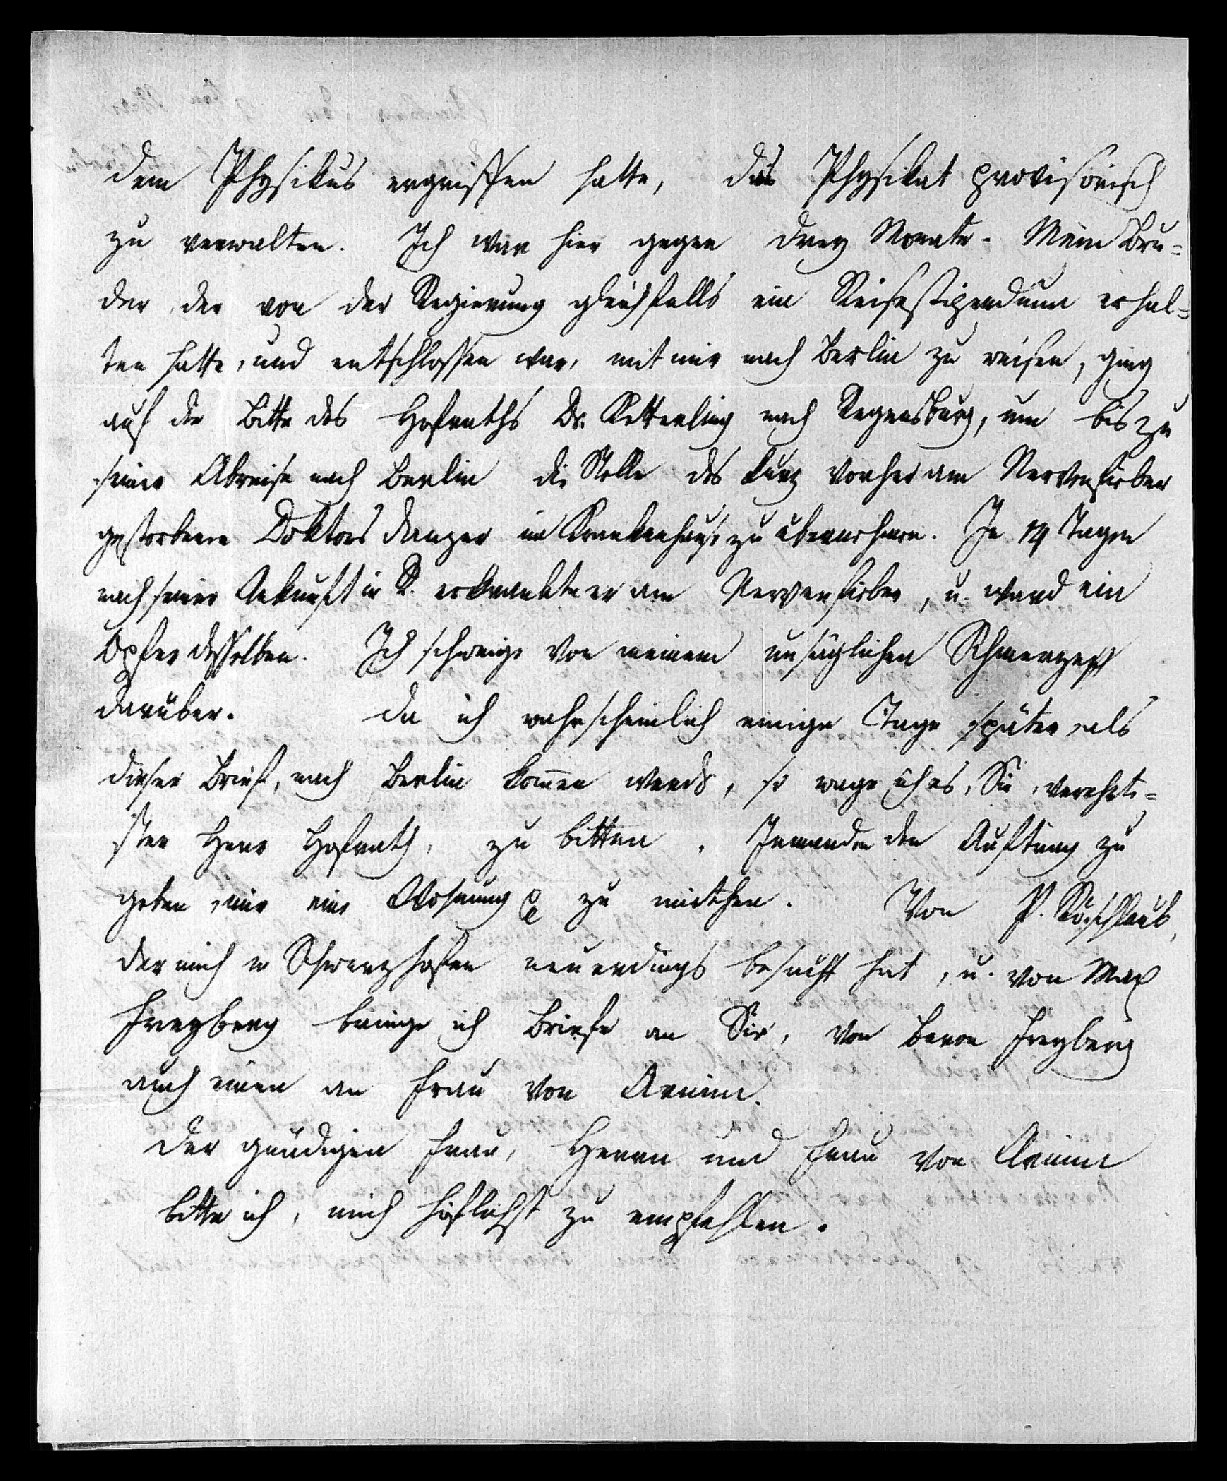 dem Physikus ergriffen hatte, das Physikat provisorisch
zu verwalten. Ich war hier gegen drey Monate. Mein Bru=
der, der von der Regierung gleichfalls ein Reisestipendium erhal=
ten hatte, und entschlossen war, mit mir nach Berlin zu reisen, ging
auf die Bitte des Hofraths Dr. Ketterling nach Regensburg, um bis zu
seiner Abreise nach Berlin die Stelle des kurz vorher am Nervenfieber
gestorbenen Doktors Danzer im Krankenhause zu übernehmen. In 14 Tagen
nach seiner Ankunft in R. erkrankte er am Nervenfieber, u. ward ein
Opfer desselben. Ich schweige von meinem unsäglichen Schmerzen
darüber. Da ich wahrscheinlich einige Tage später, als
dieser Brief, nach Berlin kommen werde, so wage ich es, Sie, verehrte=
ster Herr Hofrath, zu bitten, Jemanden den Auftrag zu
geben, mir eine Wohnung zu miethen. Von P. Röschlaub,
der mich in Schwarzhofen neuerdings besucht hat, u. von Max
Freyberg bringe ich Briefe an Sie, von Baron Freyberg
auch einen an Frau von Arnim.
Der gnädigen Frau, Herrn und Frau von Arnim
bitte ich, mich höflichst zu empfehlen.